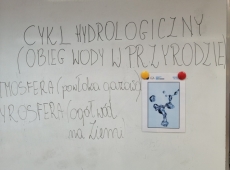 CYKL HYDROLOGICZNY
(OBIEG WODY W PRZYRODZIE
TMOSFERA (powłoka gazowa)
YROSFERA (ogół wód
na Ziemi